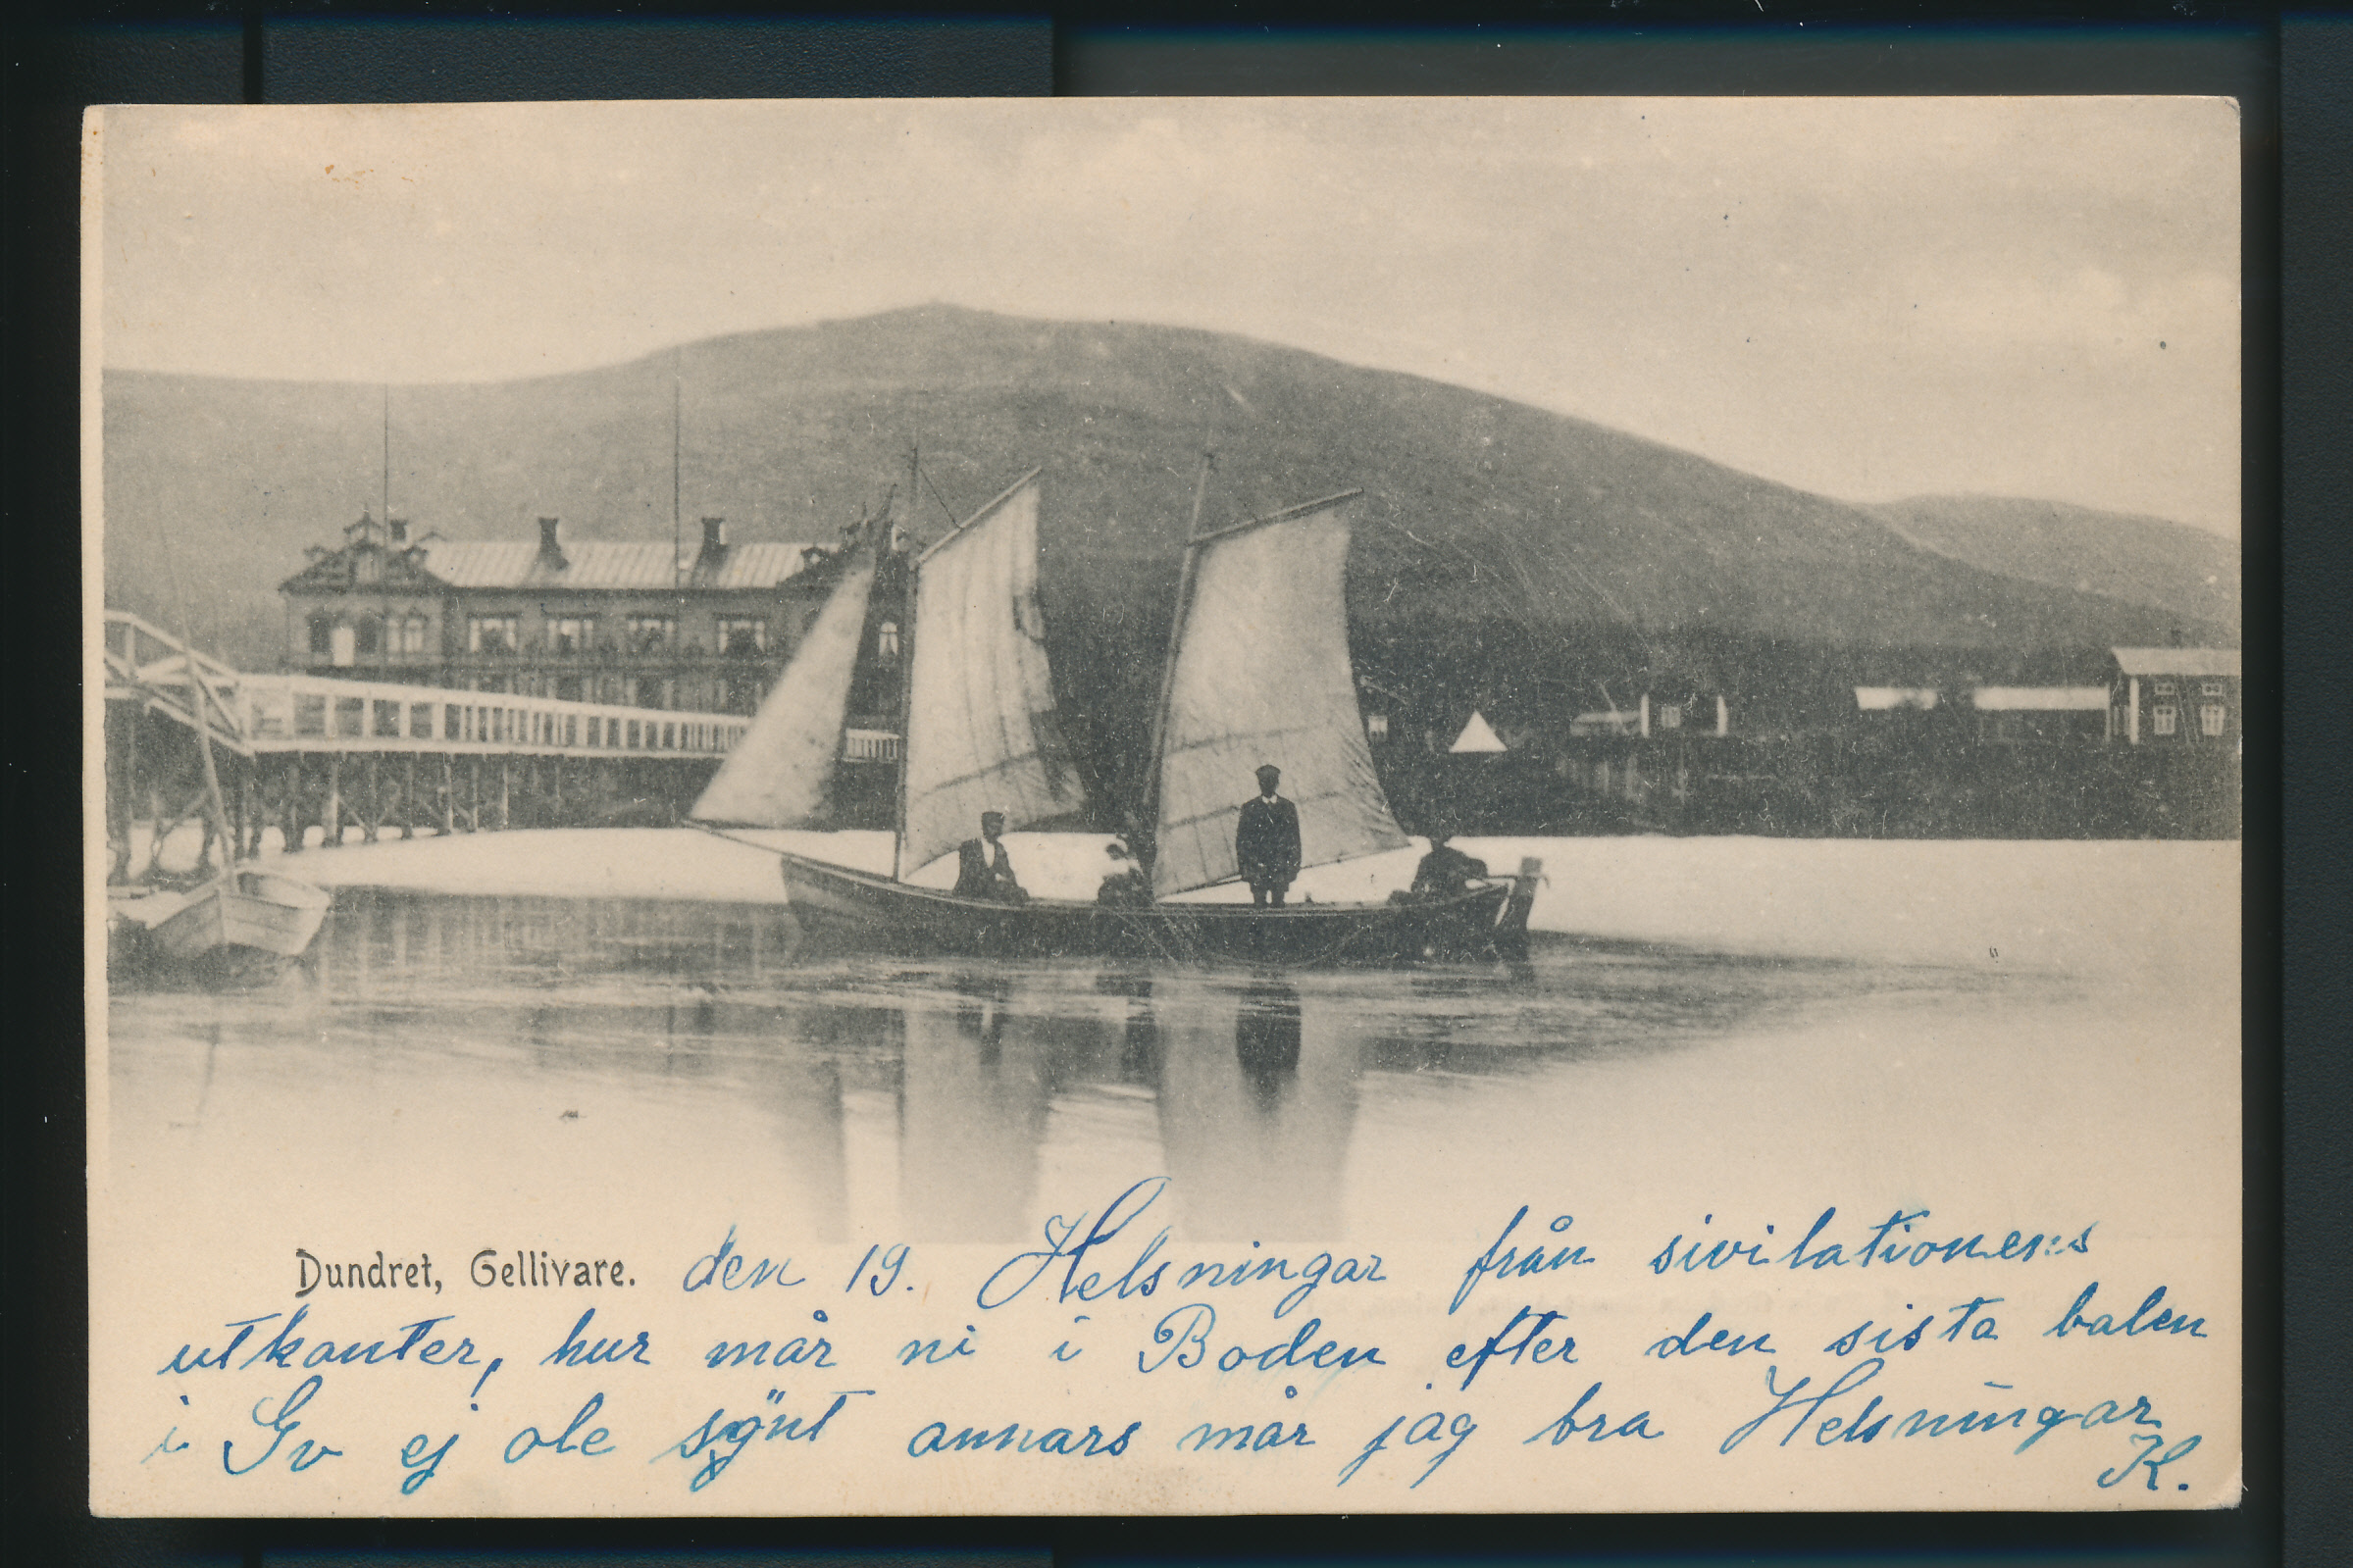 Dundret, Gellivare. den 19. Helsningar från sivilationens
utkanter, hur mår ni i Boden efter den sista balen
i Gv ej ole annars mår jag bra Helsningar
K.